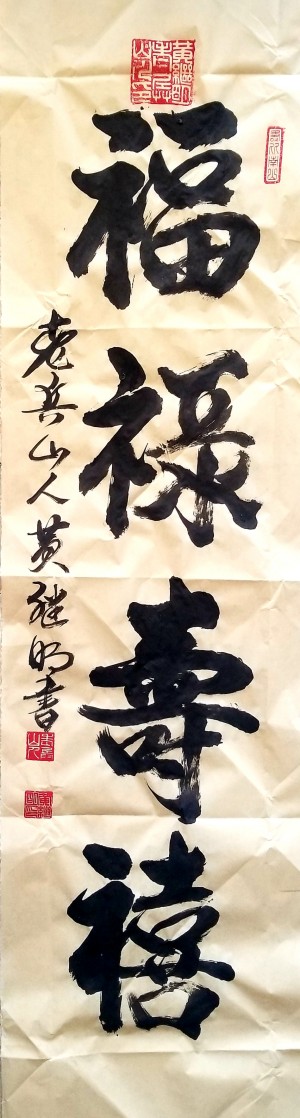 福禄壽禧
老兵山人黄继明書